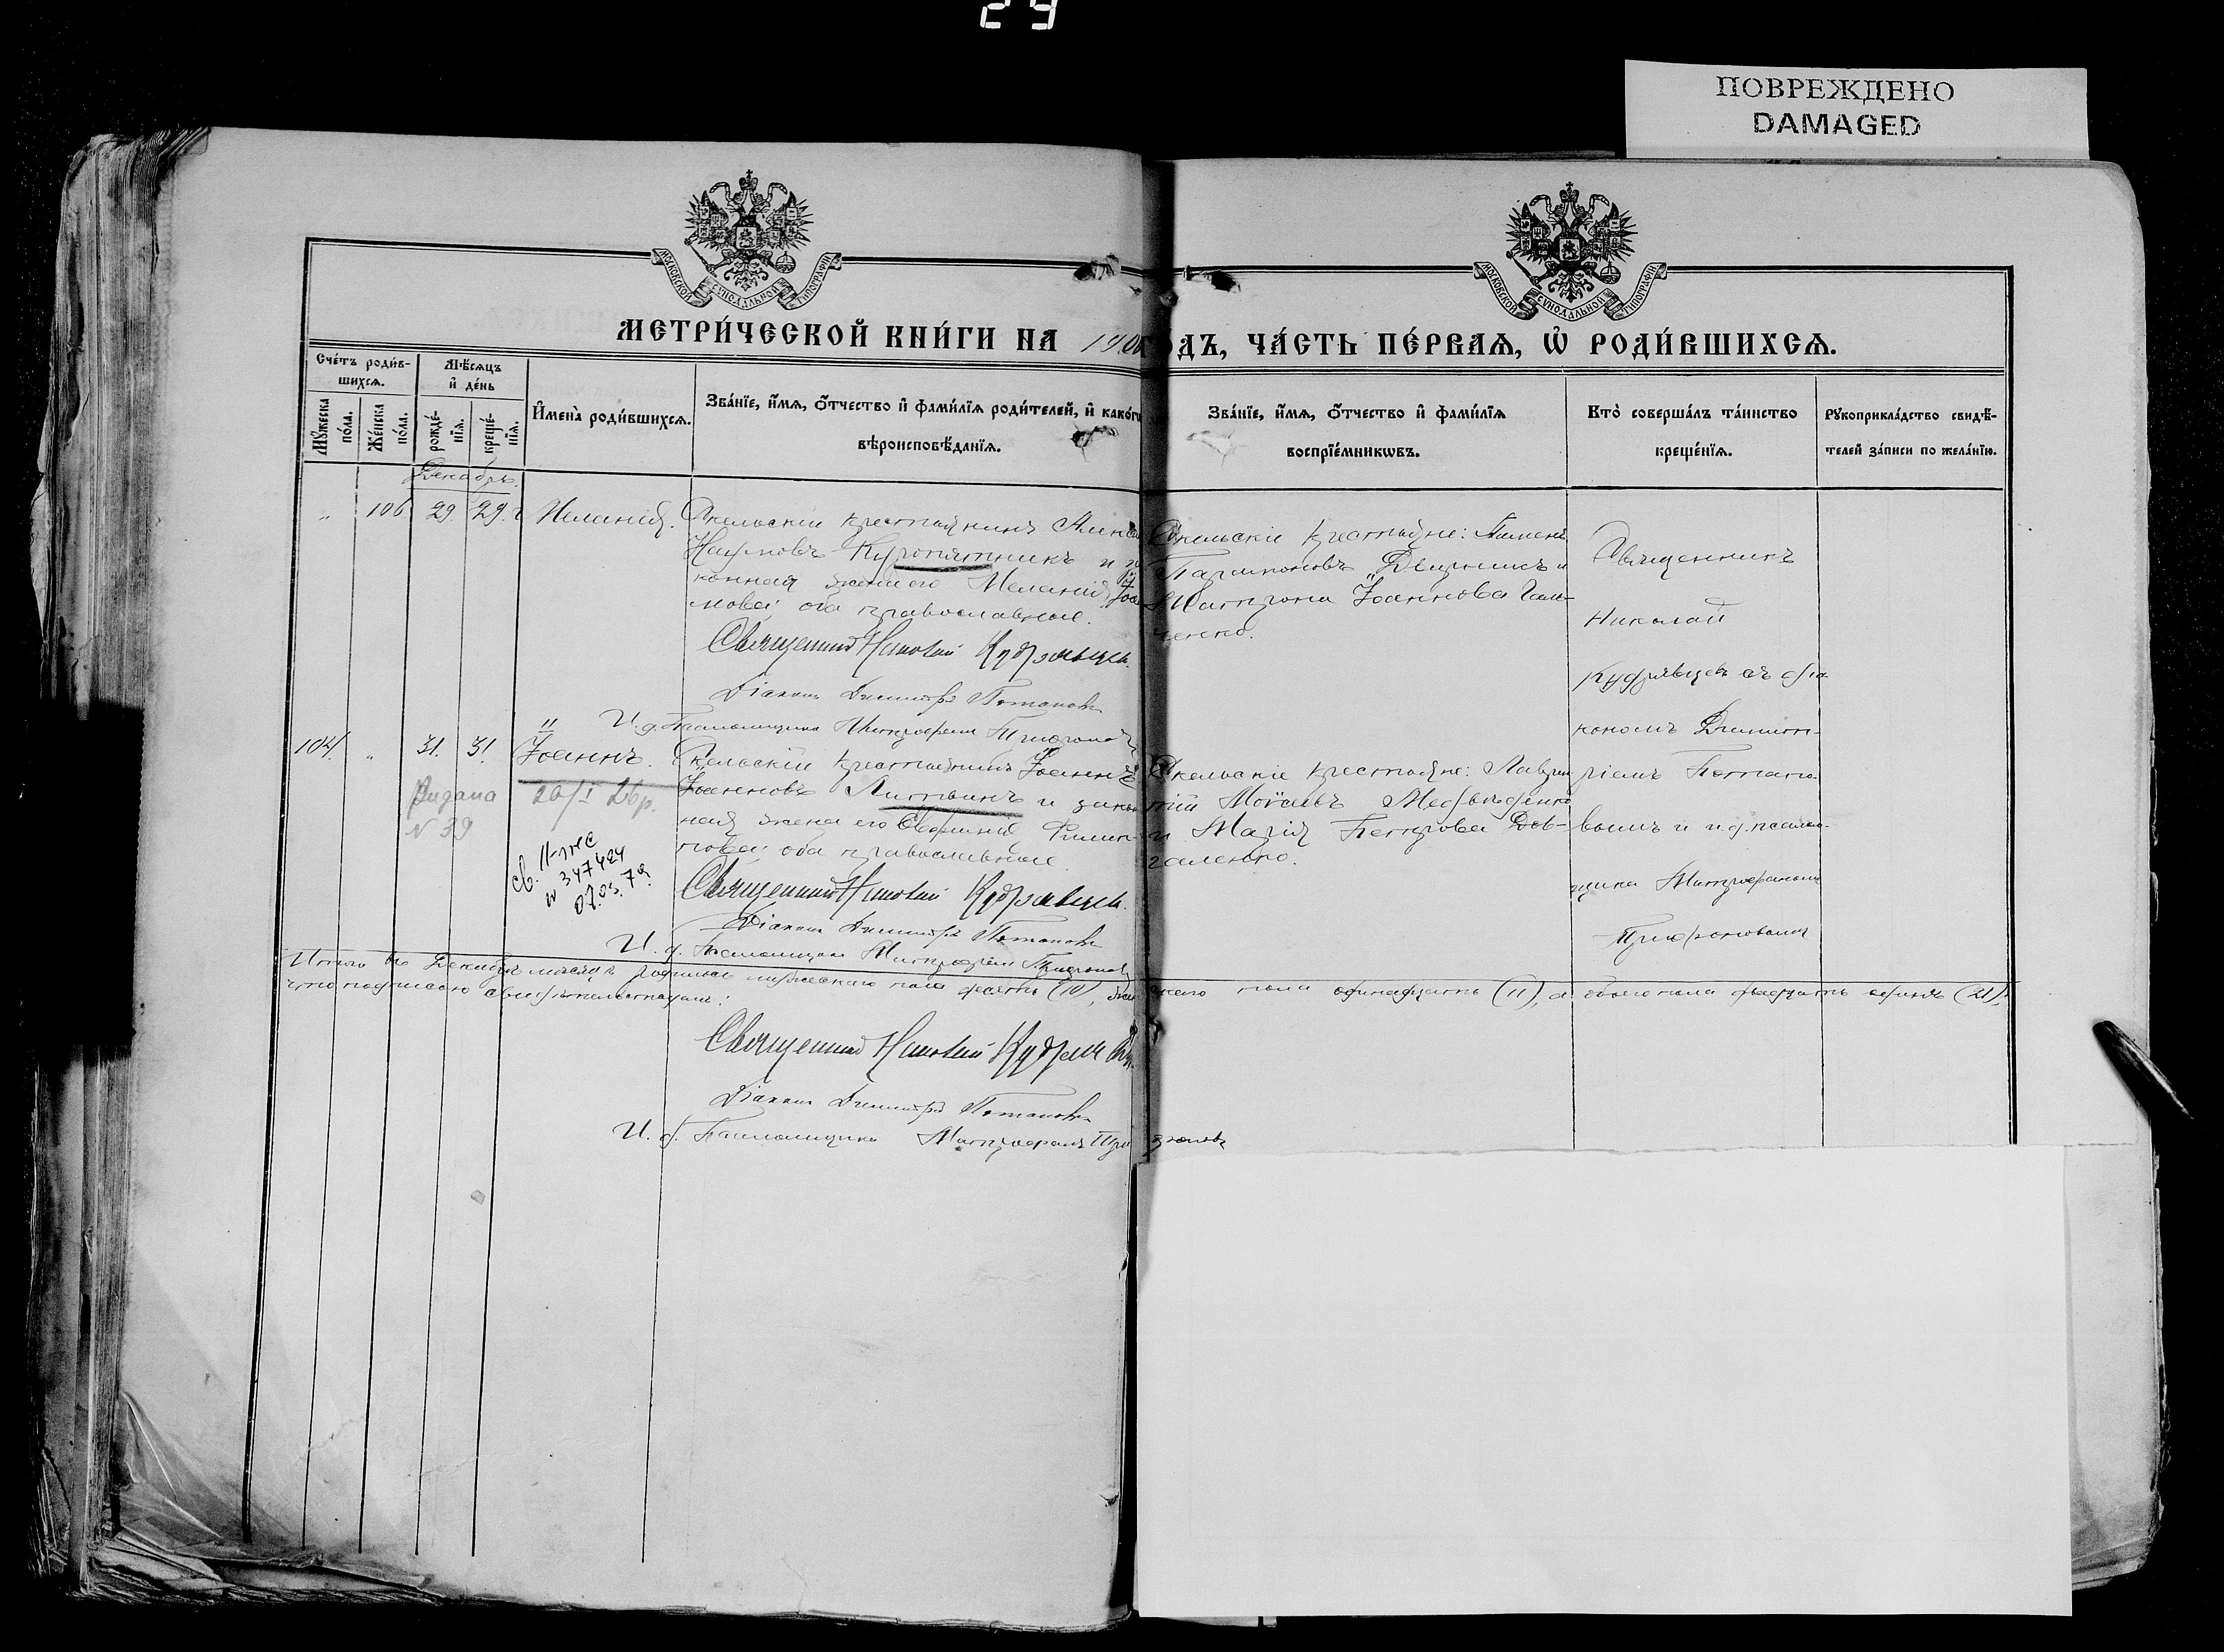 29
ПОВРЕЖДЕНО
DAMAGED
МОСКОВСКОЙ СУНОДАЛЬНОЙ ТИПОГРАФІИ
МОСКОВСКОЙ СУНОДАЛЬНОЙ ТИПОГРАФІИ
МЕТРИ́ЧЕСКОЙ КНИ́ГИ НА 190
ОДЪ, ЧА́СТЬ ПЕ́РВАѦ, Ѡ҆ РОДИ́ВШИХСѦ.
Сче́тъ роди́в-
шихсѧ.
Мꙋ́жеска
по́ла.
Же́нска
по́ла.
Мѣ́сѧцъ
и҆ де́нь
рожде́-
нїѧ.
креще́-
нїѧ.
И҆мена̀ роди́вшихсѧ.
Зва́нїе, и҆́мѧ, ѻ҆́тчество и҆ фами́лїѧ роди́телей, и҆ како́гѡ
вѣроисповѣ́данїѧ.
Зва́нїе, и҆́мѧ, ѻ҆́тчество и҆ фами́лїѧ
воспрїе́мникѡвъ.
Кто̀ соверша́лъ та́инство
креще́нїѧ.
Рꙋкоприкла́дство свидѣ́-
телей за́писи по жела́нїю.
Декабрь.
" 106 29. 29. Меланія. Скельскій крестьянинъ Алекс
Наумовъ Куропятникъ и за
конная жена его Меланія Іоан
нова; оба православные.
Священникъ Николай Кудрявцевъ.
Діаконъ Димитрій Потаповъ
И. д. Псаломщика Митрофанъ
Скельскіе крестьяне: Пимень
Парамоновъ и
Матрона Іоаннова Галь-
ченко.
Священникъ
Николай
Кудрявцевъ съ діа
кономъ Димит-
ріемъ Потапо-
вымъ и и. д. псалом-
щика Митрофаномъ
104. " 31. 31. Іоаннъ. Скельскій крестьянинъ Іоаннъ
Іоанновъ Литвинъ и закон
ная жена его Евфимія Филип-
пова; оба православные.
Видана
N 39
26/I 26р.
св. II-ЖС
N 347424
07.03.79.
Священникъ Николай Кудрявцевъ.
Діаконъ Димитрій Потаповъ
И. д. Псаломщика Митрофанъ
Скельскіе крестьяне: Лаврен
тій Моѵсеевъ Медвѣденко
и Марія Петрова Дов-
галенко.
Итого въ Декабрѣ мѣсяцѣ родилось мужескаго пола десять (10), жен
скаго пола одинадцать (11), а обоего пола двадцать одинъ (21),
что подписью свидѣтельствуемъ:
Священникъ Николай Кудрявцевъ
Діаконъ Димитрій Потаповъ
И. д. Псаломщика Митрофанъ